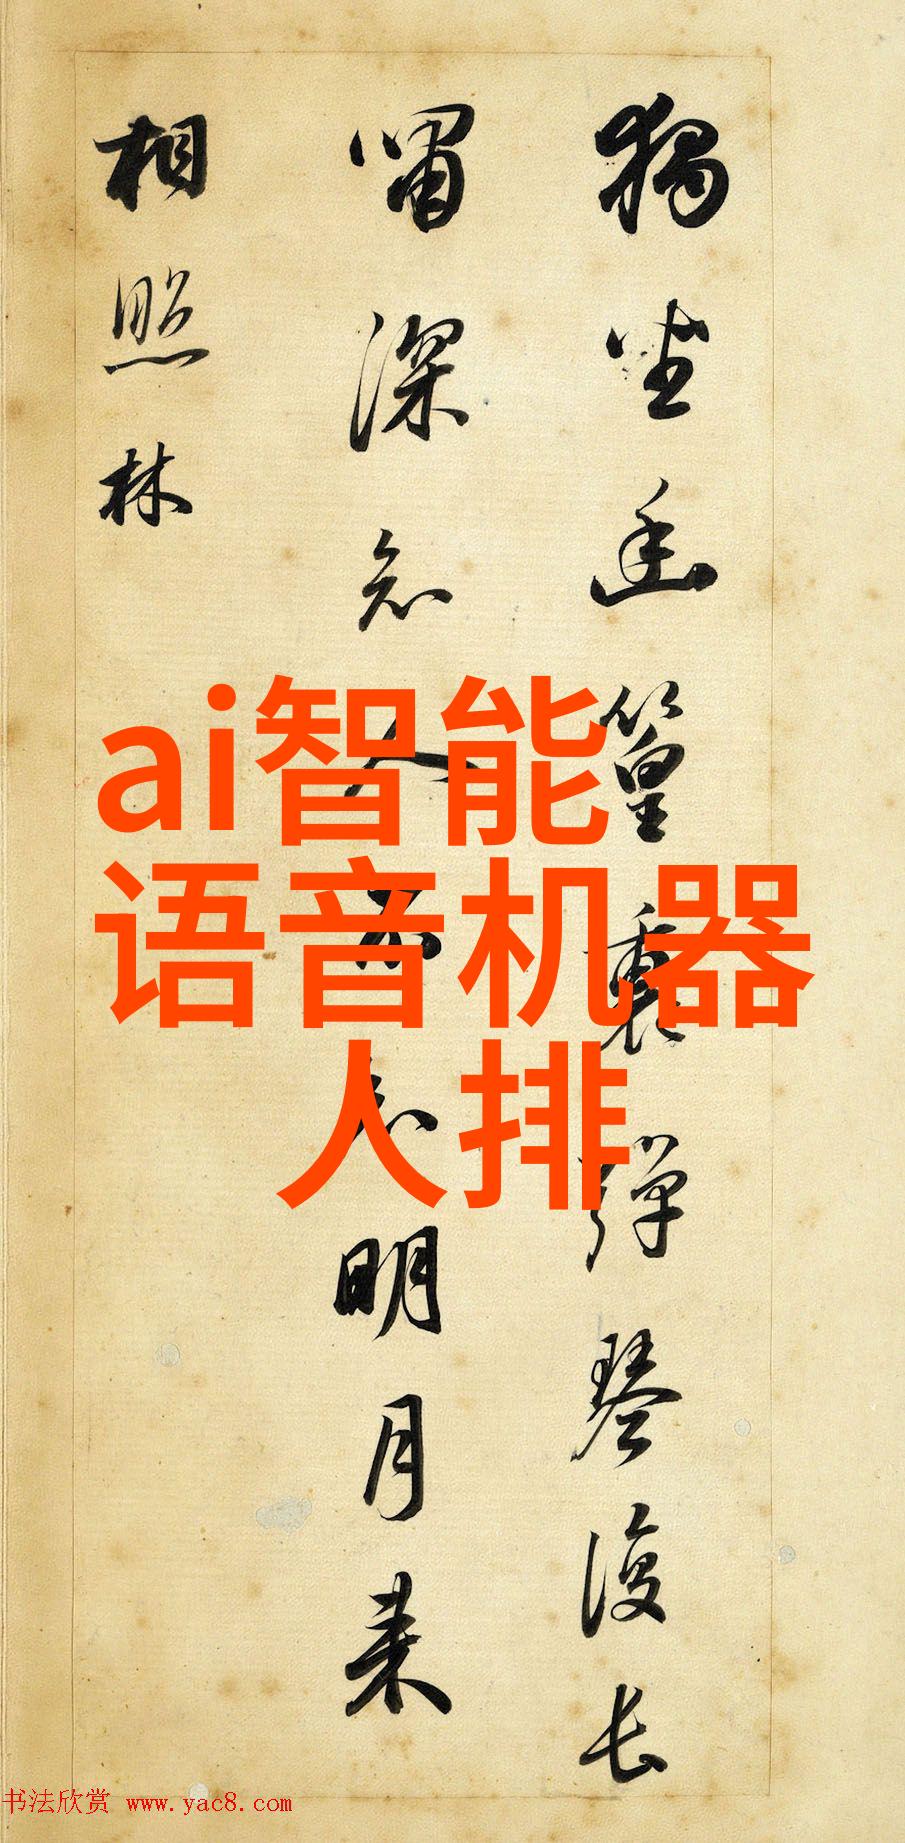 獨坐幽篁裏彈琴復長
嘯深知人不知明月來
相照林
ai智能
语音机器
人排
书法欣赏 www.yac8.com